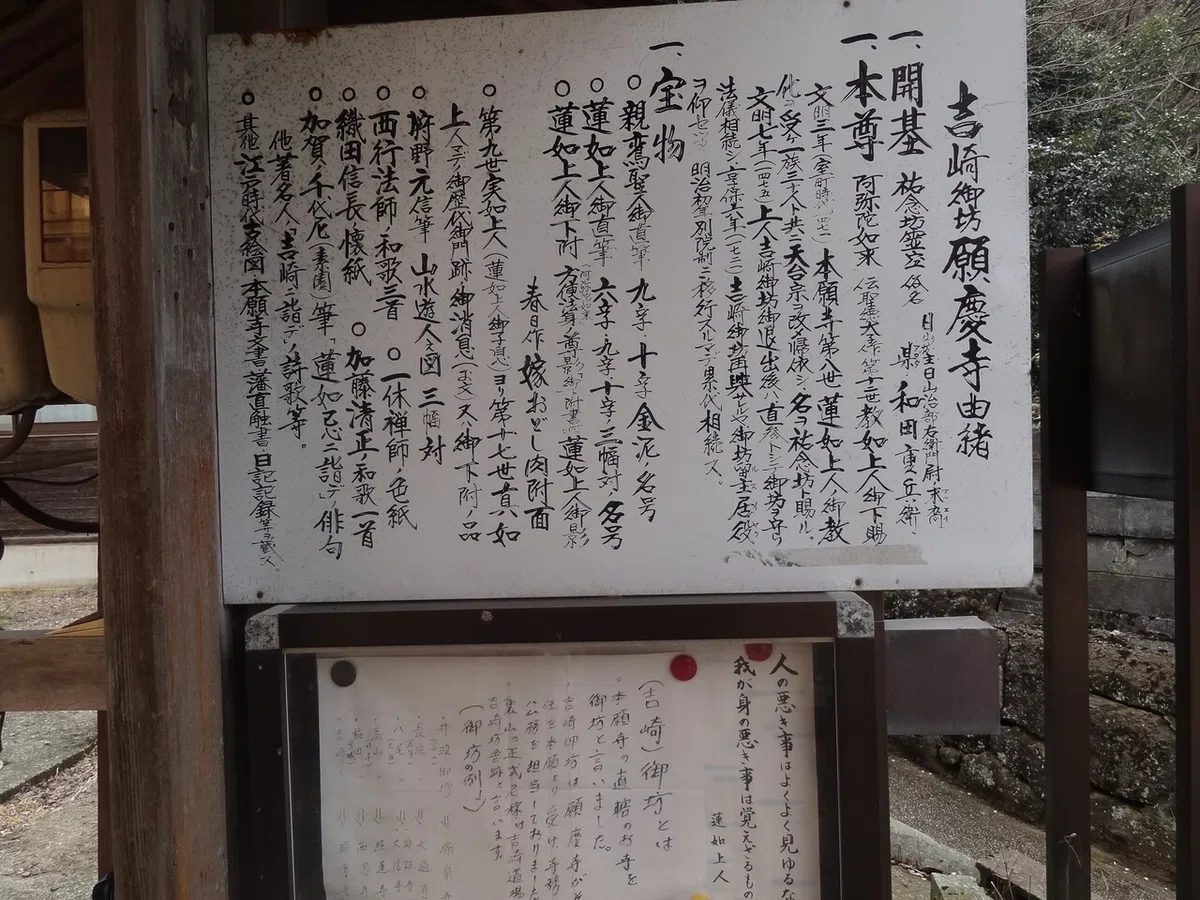 吉崎御坊願慶寺由緒
一、開基 祐念坊霊空 俗名
和田重兵衛
一、本尊 阿弥陀如来 伝聖徳太子作 第十二世教如上人御下賜
文明三年(室町時代 一四七一) 本願寺第八世蓮如上人ノ御教
化ヲ受ケ一族三十八人共ニ天台宗ヨリ改メ帰依シ、名ヲ祐念坊ト賜ル。
文明七年(一四七五)上人吉崎御坊御退出後ハ直参トシテ御坊ヲ守リ
法儀相続シ、享保六年(一七二一)吉崎御坊再興サルルヤ御坊留主居役
ヲ仰セ 明治初年別院制ニ移行スルマデ累代相続ス。
一、宝物
○親鸞聖人御直筆 九字十字金泥ノ名号
○蓮如上人御直筆 六字九字十字三幅対ノ名号
○蓮如上人御下附 方便法身ノ尊影 蓮如上人御影
春日作 嫁おどし肉附面
○第九世実如上人(蓮如上人御子息)ヨリ第十七世真如
上人マデノ御歴代御門跡ノ御消息(お文)又ハ御下附ノ品
○狩野元信筆 山水遊人之図 三幅対
○西行法師ノ和歌三首 ○一休禅師ノ色紙
○織田信長ノ懐紙 ○加藤清正ノ和歌一首
○加賀ノ千代尼(素園)筆「蓮如忌ニ詣デ」ノ俳句
他著名人「吉崎ニ詣デ」ノ詩歌等。
○其他 江戸時代古絵図 本願寺文書 藩直触書 日記記録等ヲ蔵ス
人の悪き事はよくよく見ゆるな
我が身の悪き事は覚えざるもの
蓮如上人
(吉崎)御坊とは
・本願寺の直轄のお寺を
御坊と言いました。
・吉崎御坊は願慶寺がそ
任を本願寺より受け寺務
公務を担当しておりました
・東山の正式名称は吉崎道場
吉崎坊舎跡と言います。
(御坊の例)